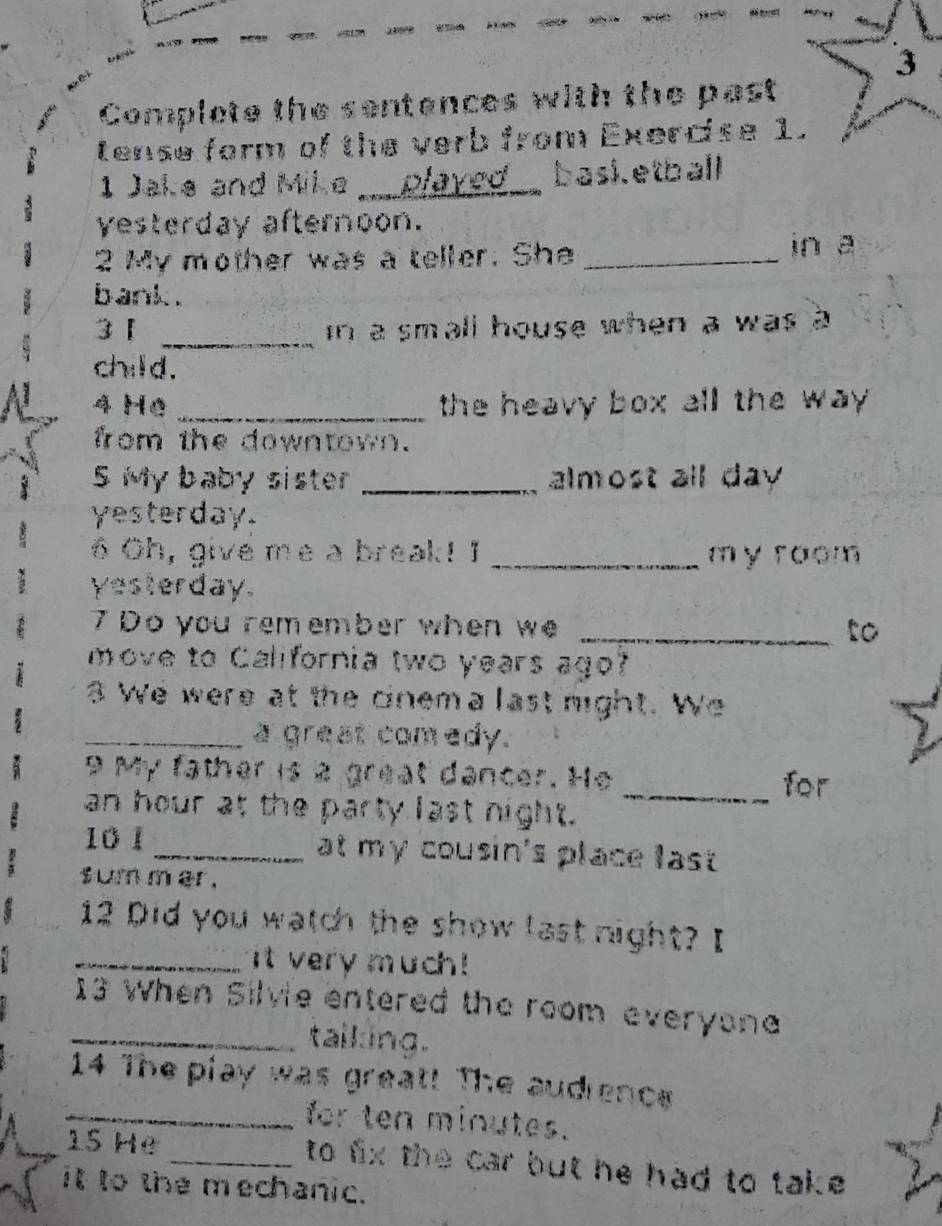 3
Complete the sentences with the past
tense form of the verb from Exercise 1.
1 Jake and Mike played basketball
yesterday afternoon.
2 My mother was a teller. She __________ in a
bank.
3 I __________ in a small house when a was a
child.
4 He __________ the heavy box all the way
from the downtown.
5 My baby sister __________ almost all day
yesterday.
6 Oh, give me a break! I __________ my room
yesterday.
7 Do you remember when we __________ to
move to California two years ago?
8 We were at the cinema last night. We
__________ a great comedy.
9 My father is a great dancer. He __________ for
an hour at the party last night.
10 I __________ at my cousin's place last
summer.
12 Did you watch the show last night? I
__________ it very much!
13 When Silvie entered the room everyone
__________ talking.
14 The play was great! The audience
__________ for ten minutes.
15 He __________ to fix the car but he had to take
it to the mechanic.